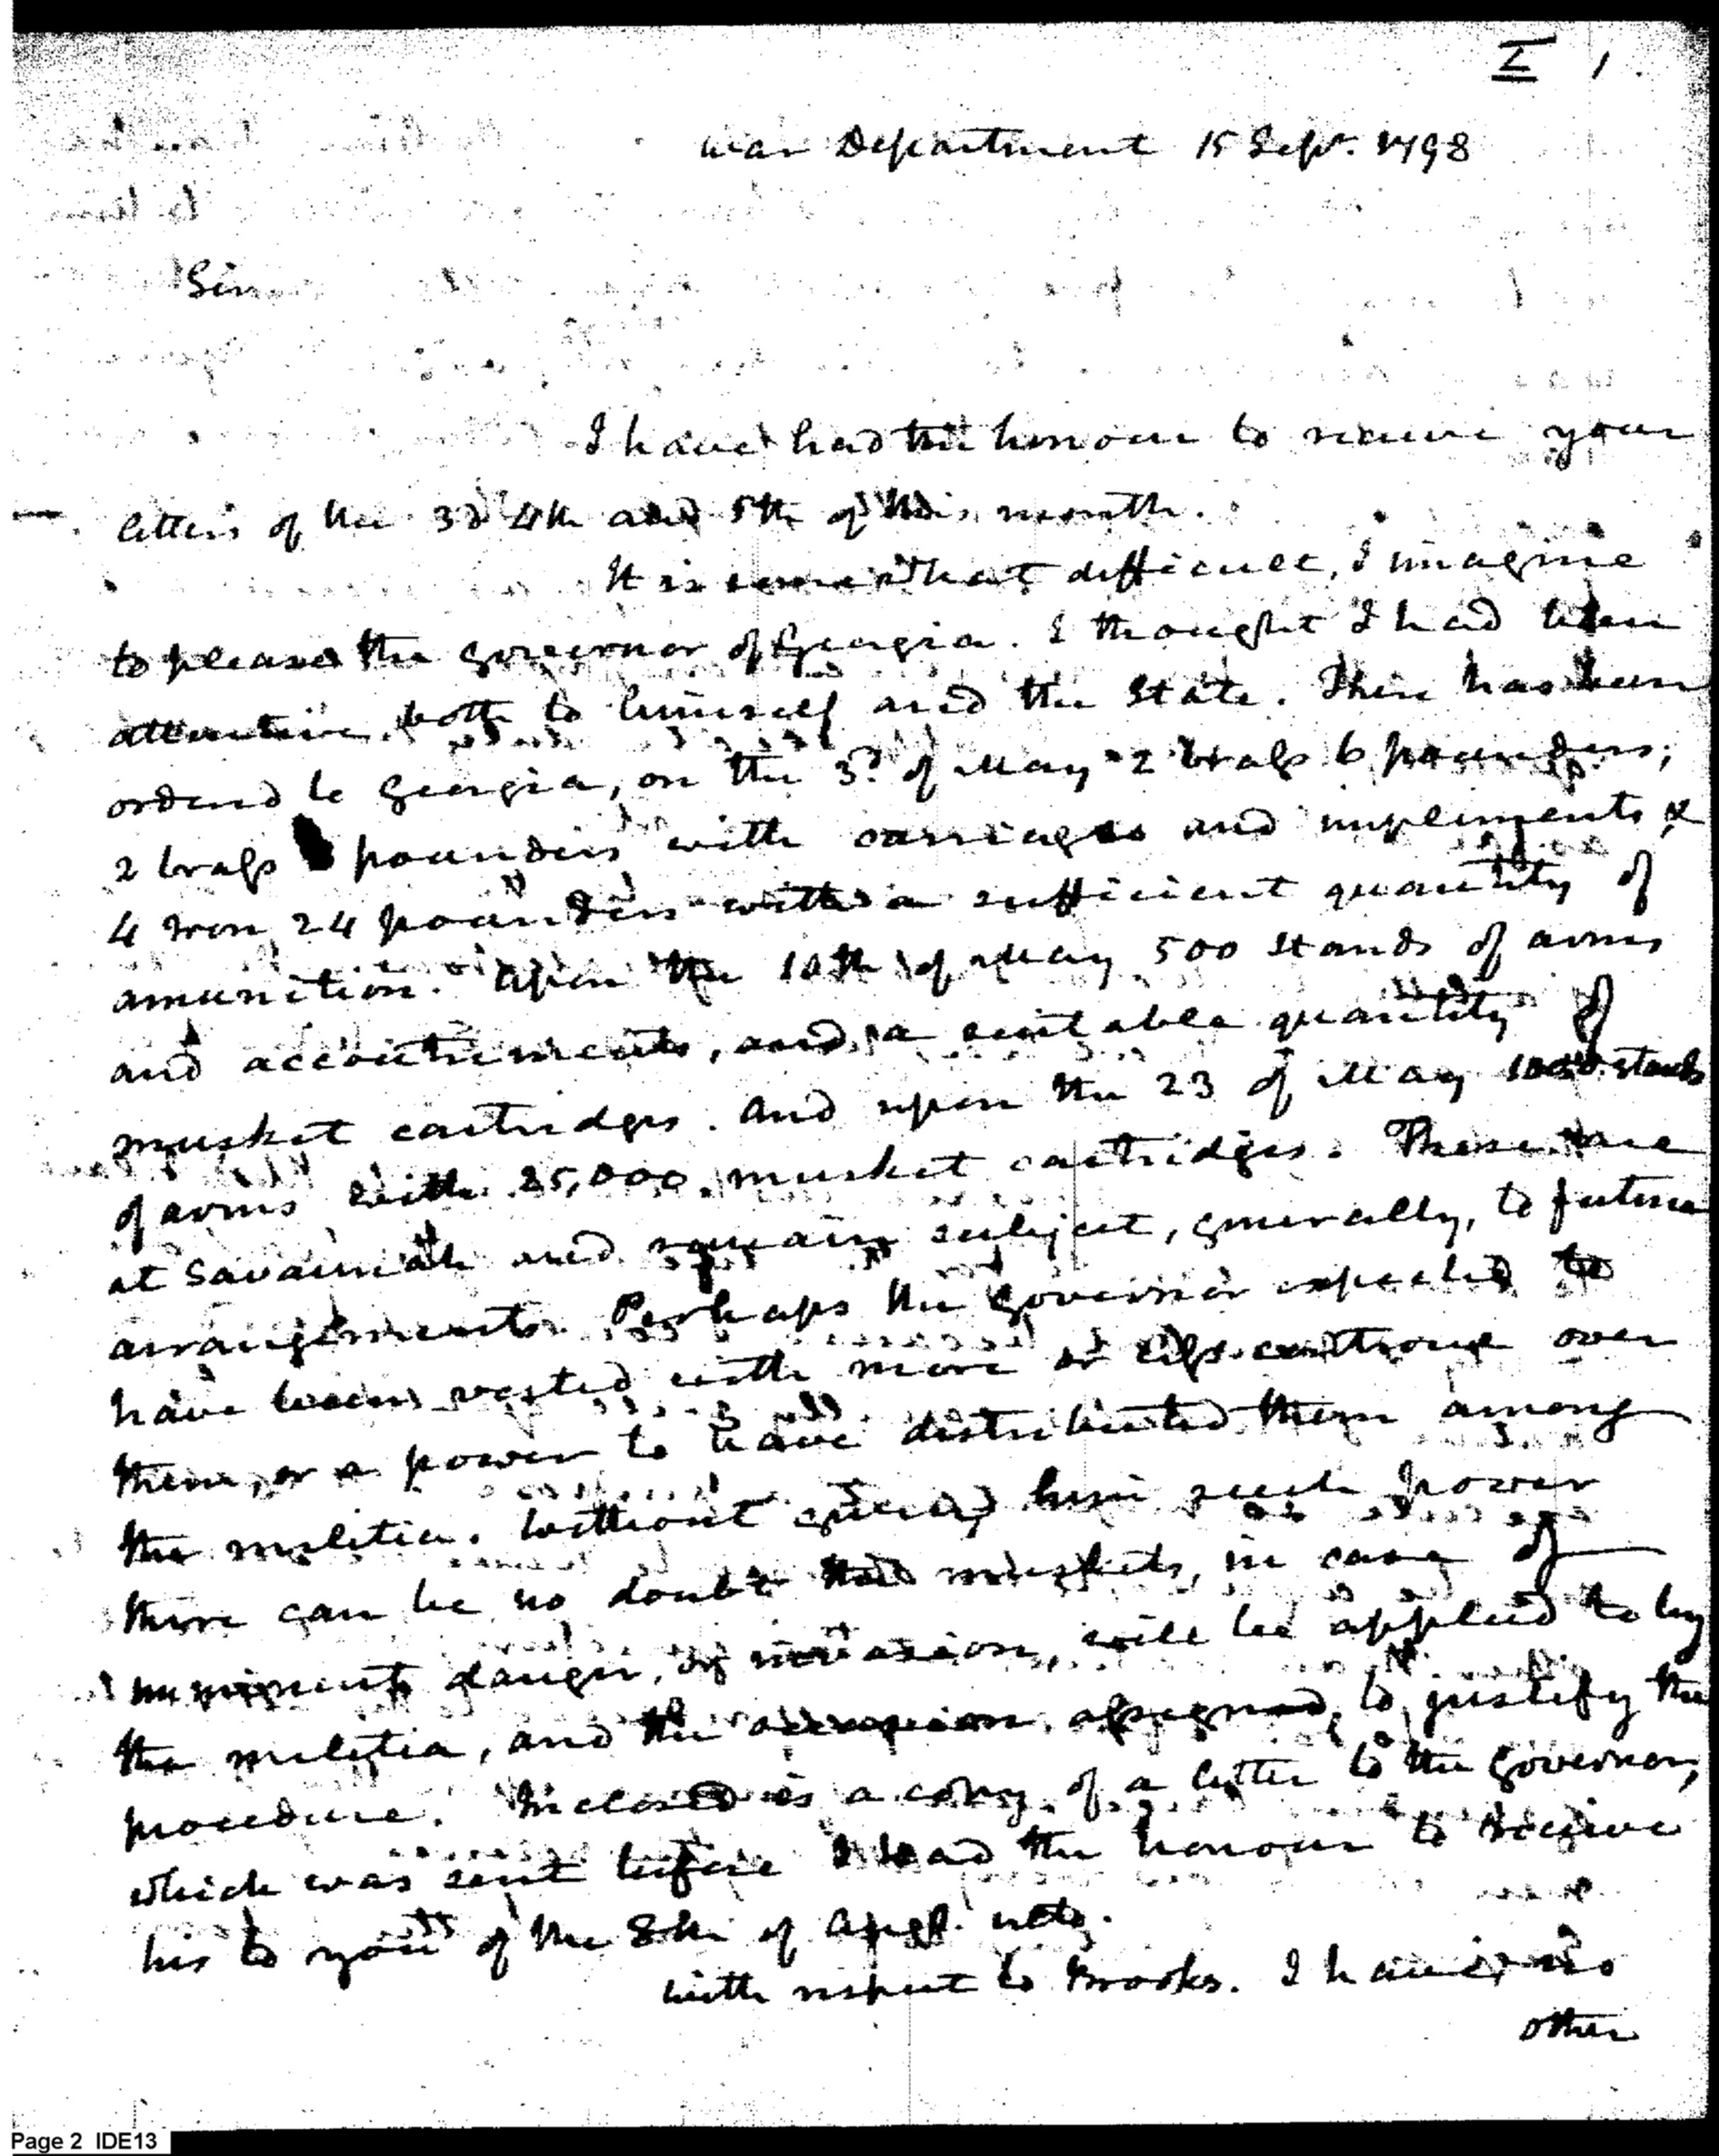 I 1.
War Department 15 Sepr. 1798
Sir
I have had the honour to receive your
letters of the 3d 4th and 5th of this month.
It is somewhat difficult, I imagine
to please the governor of Georgia. I thought I had been
attentive both to himself and the State. There has been
ordered to Georgia, on the 3d of May 2 brass 6 pounders,
2 brass pounders with carriages and implements &
4 iron 24 pounders with a sufficient quantity of
amunition. Upon the 10th of May 500 stands of arms
and accoutrements, and a suitable quantity of
musket cartridges. and upon the 23 of May 1000 stands
of arms with 25,000 musket cartridges. These are
at Savannah and remain subject, generally, to future
arrangements. Perhaps the Governor expected to
have been vested with more or less controul over
them, or a power to have distributed them among
the militia. Without giving him such power
there can be no doubt the muskets, in case of
imminent danger, or invasion, will be applied to by
the militia, and the occasion assigned to justify the
procedure. Inclosed is a copy of a letter to the Governor,
which was sent before I had the honour to receive
his to you of the 8th of Augt. ulto.
With respect to Brooks. I have no
other
Page 2 IDE13